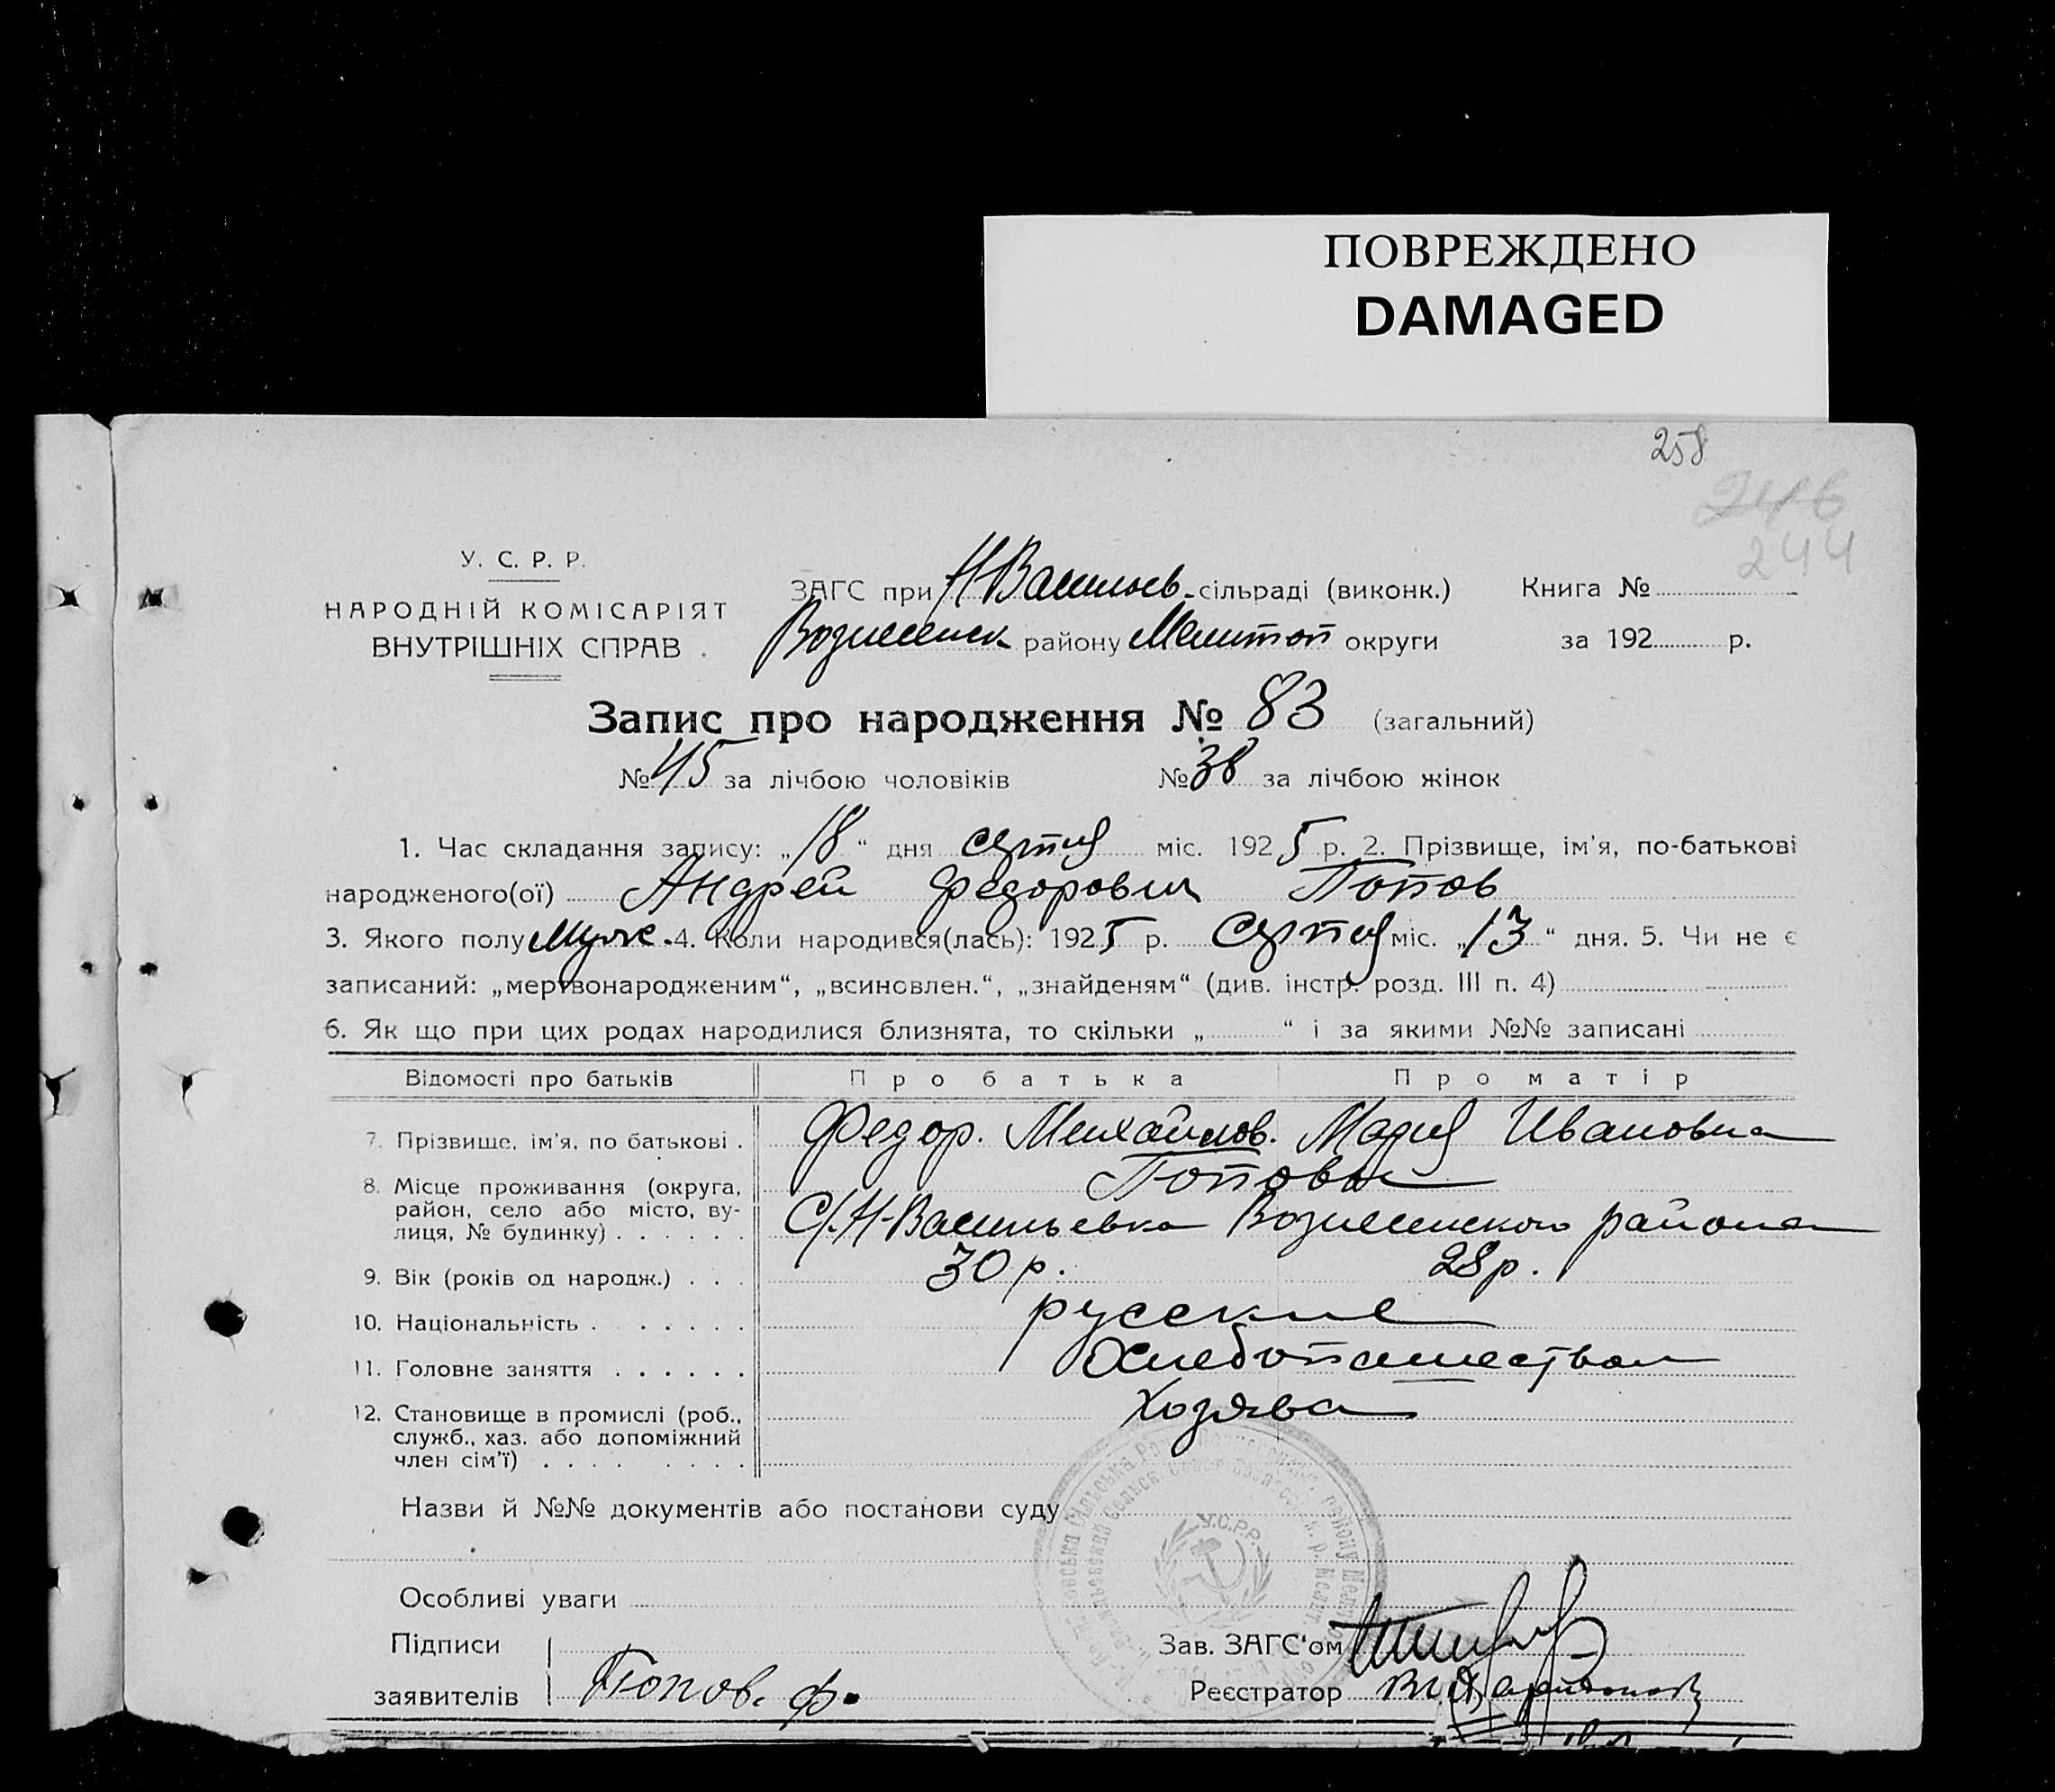 ПОВРЕЖДЕНО
DAMAGED
258
246
244
У. С. Р. Р.
НАРОДНІЙ КОМІСАРІЯТ
ВНУТРІШНІХ СПРАВ.
ЗАГС при Н Васильев. сільраді (виконк.) Книга №
Вознесенск району Мелитоп округи за 192 р.
Запис про народження № 83 (загальний)
№ 45 за лічбою чоловіків № 38 за лічбою жінок
1. Час складання запису: „18“ дня серпня міс. 1925 р. 2. Прізвище, ім'я, по-батькові
народженого(ої) Андрей Федорович Попов
3. Якого полу Муж. 4. Коли народився(лась): 1925 р. Серпня міс. „13“ дня. 5. Чи не є
записаний: „мертвонародженим“, „всиновлен.“, „знайденям“ (див. інстр. розд. III п. 4)
6. Як що при цих родах народилися близнята, то скільки „ “ і за якими №№ записані
Відомості про батьків Про батька Про матір
7. Прізвище, ім'я, по батькові . Федор. Михайлов. Мария Ивановна
Поповы
8. Місце проживання (округа,
район, село або місто, ву-
лиця, № будинку) . . . . . . С. Н-Васильевка Вознесенского района
9. Вік (років од народж.) . . . 30 р. 28 р.
10. Національність . . . . . . . русские
11. Головне заняття . . . . . . Хлебопашество
12. Становище в промислі (роб., Хозяева
служб., хаз. або допоміжний
член сім'ї) . . . . . . . .
Назви й №№ документів або постанови суду
У.С.Р.Р.
Особливі уваги
Підписи
Зав. ЗАГС'ом
заявителів Попов. Ф.
Реєстратор